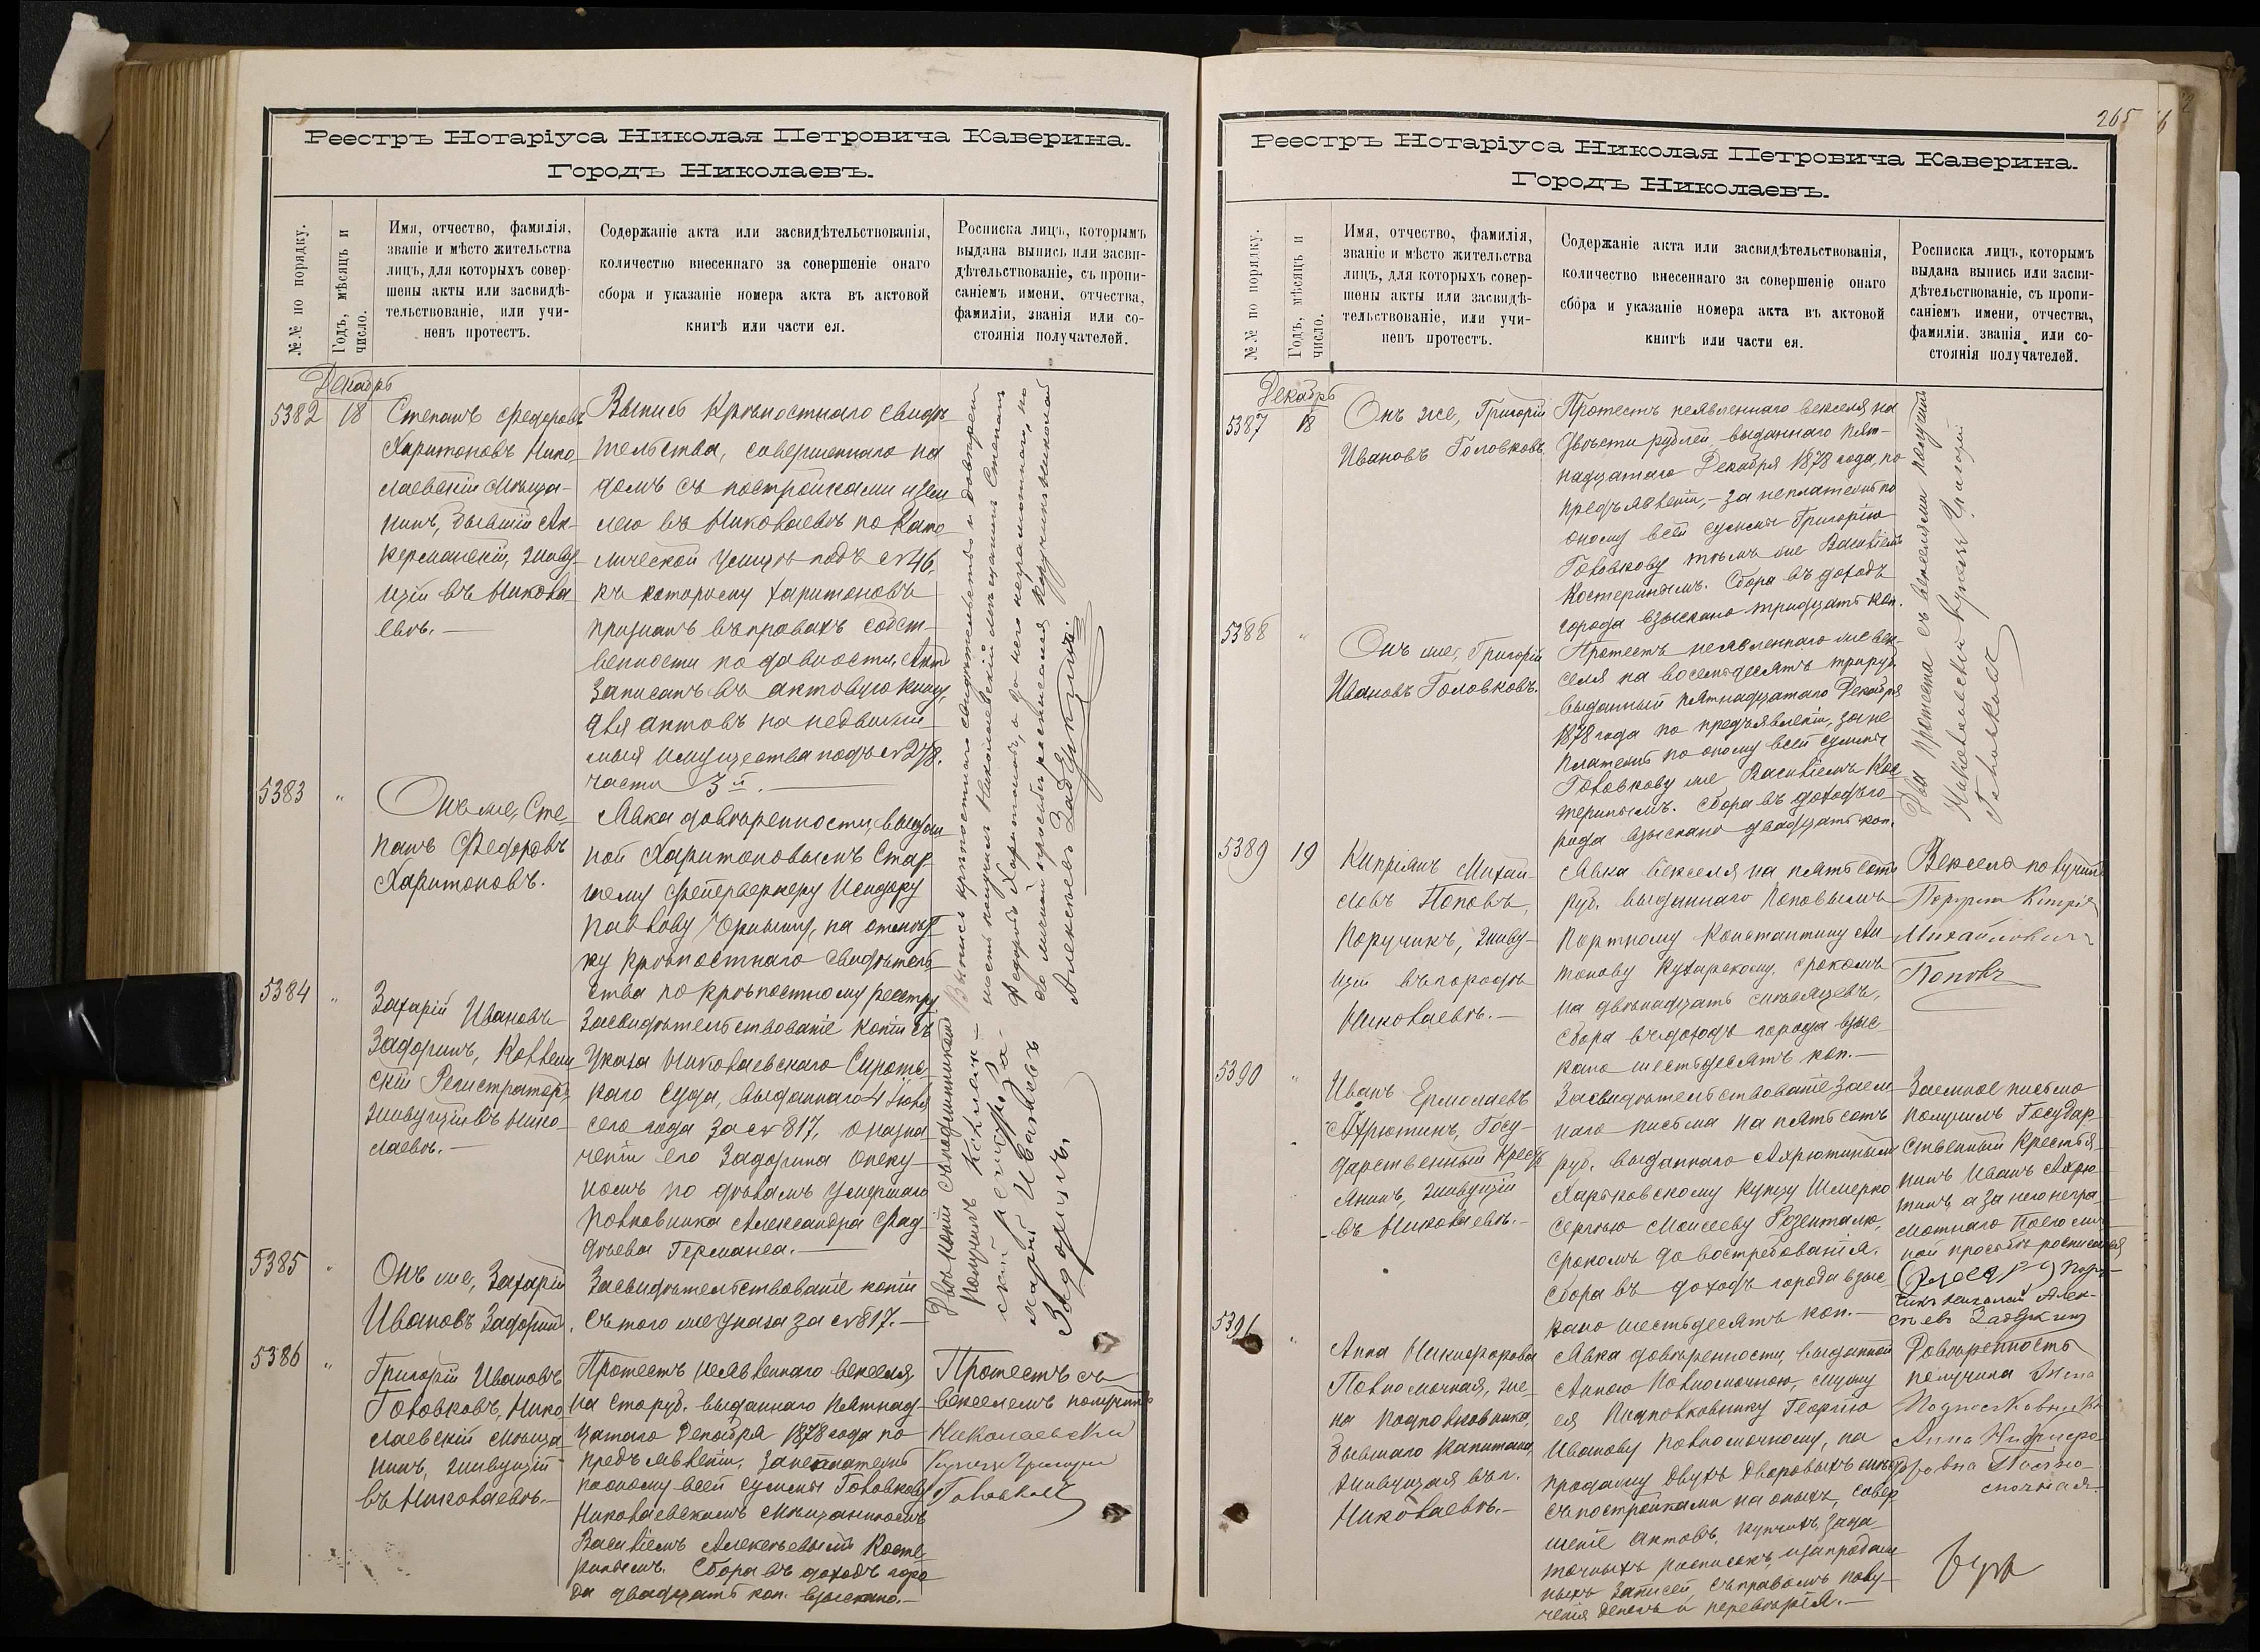 Реестръ Нотаріуса Николая Петровича Каверина.
Городъ Николаевъ.
№№ по порядку.
Годъ, мѣсяцъ и
число.
Имя, отчество, фамилія,
званіе и мѣсто жительства
лицъ, для которыхъ совер-
шены акты или засвидѣ-
тельствованіе, или учи-
ненъ протестъ.
Содержаніе акта или засвидѣтельствованія,
количество внесеннаго за совершеніе онаго
сбора и указаніе номера акта въ актовой
книгѣ или части ея.
Росписка лицъ, которымъ
выдана выпись или засви-
дѣтельствованіе, съ пропи-
саніемъ имени, отчества,
фамиліи, званія или со-
стоянія получателей.
Декабрь
5382
18
Степанъ Федоровъ
Харитоновъ Нико-
лаевскій Мѣща-
нинъ, бывшій Ак-
керманскій, живу-
щій въ Никола-
евѣ.—
Выпись Крѣпостнаго свидѣ-
тельства, совершеннаго на
домъ съ постройками и зем
лею въ Николаевѣ по Като-
лической улицѣ подъ №46,
къ которому Харитоновъ
признанъ въ правахъ собст-
венности по давности, Актъ
записанъ въ актовую книгу,
для актовъ на недвижи-
мыя имущества подъ №278.
части 3й.
5383
"
Онъ же, Сте-
панъ Федоровъ
Харитоновъ.
Явка довѣренности, выдан
ной Харитоновымъ Стар-
шему Фейерверкеру Исидору
Павлову Ерньшу, на отмѣт-
ку крѣпостнаго свидѣтель-
ства по крѣпостному реестру
Выпись крѣпостнаго свидѣтельства и довѣрен
ность получилъ Николаевскій мѣщанинъ Степанъ
Федоровъ Харитоновъ, а за него неграмотнаго, по
его личной просьбѣ росписался Поручикъ Николай
Алексѣевъ Забудкинъ
5384
"
Захарій Ивановъ
Задоринъ, Коллеж
скій Регистраторъ
живущій въ Нико-
лаевѣ.—
Засвидѣтельствованіе копіи съ
Указа Николаевскаго Сиротс-
каго Суда, выданнаго 4 Іюня
сего года за №817, о назна-
ченіи его Задорина опеку-
номъ по дѣламъ умершаго
Полковника Александра Фад-
дѣева Германса.—
5385
"
Онъ же, Захарій
Ивановъ Задоринъ.
Засвидѣтельствованіе копіи
съ того же указа за №817.—
Двѣ копіи съ подлинникомъ
получилъ Коллеж-
скій регистра-
Захарій Ивановъ
Задоринъ
5386
"
Григорій Ивановъ
Головковъ, Нико-
лаевскій Мѣща-
нинъ, живущій
въ Николаевѣ.—
Протестъ неявленнаго векселя,
на сто руб. выданнаго Пятнад-
цатаго Декабря 1878 года по
предъявленіи, за неплатежъ
по оному всей суммы Головкову
Николаевскимъ Мѣщаниномъ
Василіемъ Алексѣевымъ Косте-
ринымъ. Сбора въ доходъ горо-
да двадцать коп. взыскано.—
Протестъ съ
векселемъ получилъ
Николаевскій
Купецъ Григорій
Головковъ
265
Реестръ Нотаріуса Николая Петровича Каверина.
Городъ Николаевъ.
№№ по порядку.
Годъ, мѣсяцъ и
число.
Имя, отчество, фамилія,
званіе и мѣсто жительства
лицъ, для которыхъ совер-
шены акты или засвидѣ-
тельствованіе, или учи-
ненъ протестъ.
Содержаніе акта или засвидѣтельствованія,
количество внесеннаго за совершеніе онаго
сбора и указаніе номера акта въ актовой
книгѣ или части ея.
Росписка лицъ, которымъ
выдана выпись или засви-
дѣтельствованіе, съ пропи-
саніемъ имени, отчества,
фамиліи. званія или со-
стоянія получателей.
Декабрь
5387
18
Онъ же, Григорій
Ивановъ Головковъ
Протестъ неявленнаго векселя на
двѣсти рублей, выданнаго Пят-
надцатаго Декабря 1878 года, по
предъявленіи,— за неплатежъ по
оному всей суммы Григорію
Головкову тѣмъ же Василіемъ
Костеринымъ. Сбора въ доходъ
города взыскано тридцать коп.
5388
"
Онъ же, Григорій
Ивановъ Головковъ.
Протестъ неявленнаго же век-
селя на восемьдесятъ три руб.
выданный пятнадцатаго Декабря
1878 года по предъявленіи, за не
платежъ по оному всей суммы
Головкову же Василіемъ Кос-
теринымъ. Сбора въ доходъ го-
рода взыскано двадцать коп.
Два протеста съ векселями получилъ
Николаевскій Купецъ Григорій
Головковъ
5389
19
Кипріянъ Михай-
ловъ Поповъ,
Поручикъ, живу-
щій въ городѣ
Николаевѣ.—
Явка векселя на пять сотъ
руб. выданнаго Поповымъ
Портному Константину Ан-
тонову Кухарскому, срокомъ
на двѣнадцать мѣсяцевъ,
Сбора въ доходъ города взыс-
кано шестьдесятъ коп.—
Вексель получилъ
Михайловичъ
Поповъ
5390
"
Иванъ Ермолаевъ
Ахрютинъ, Госу-
дарственный Кресть
янинъ, живущій
въ Николаевѣ.—
Засвидѣтельствованіе Заем-
наго письма на пять сотъ
руб. выданнаго Ахрютинымъ
Харьковскому Купцу Шмерко
Сергѣю Моисееву Розенталю,
срокомъ до востребованія.
Сбора въ доходъ города взыс-
кано шестьдесятъ коп.—
Заемное письмо
получилъ Государ-
ственный Крестья-
нинъ Иванъ Ахрю-
тинъ, а за него негра-
мотнаго по его лич-
ной просьбѣ росписался
Пору-
чикъ Николай Алек-
сѣевъ Забудкинъ
5391
"
Анна Никифорова
Повномочная, же-
на Подполковника,
бывшаго Капитана,
живущая въ г.
Николаевѣ.—
Явка довѣренности, выданной
Анною Повномочною, мужу
ея Подполковнику Георгію
Иванову Повномочному, на
продажу двухъ дворовыхъ мѣстъ
съ постройками на оныхъ, совер-
шеніе актовъ, купчихъ, зада-
точныхъ росписокъ, и запродаж-
ныхъ записей съ правомъ полу-
ченія денегъ и перевѣрія.—
Довѣренность
получила Жена
Подполковника
Анна Никифоро-
вна Повно-
мочная.